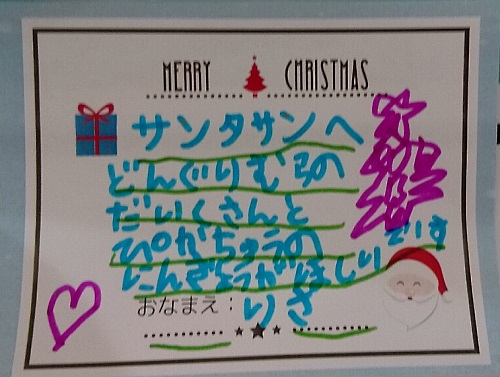 MERRY CHRISTMAS
サンタサンへ
どんぐりむらの
だいくさんと
ぴかちゅうの
にんぎょうがほしいです
おなまえ：りさ